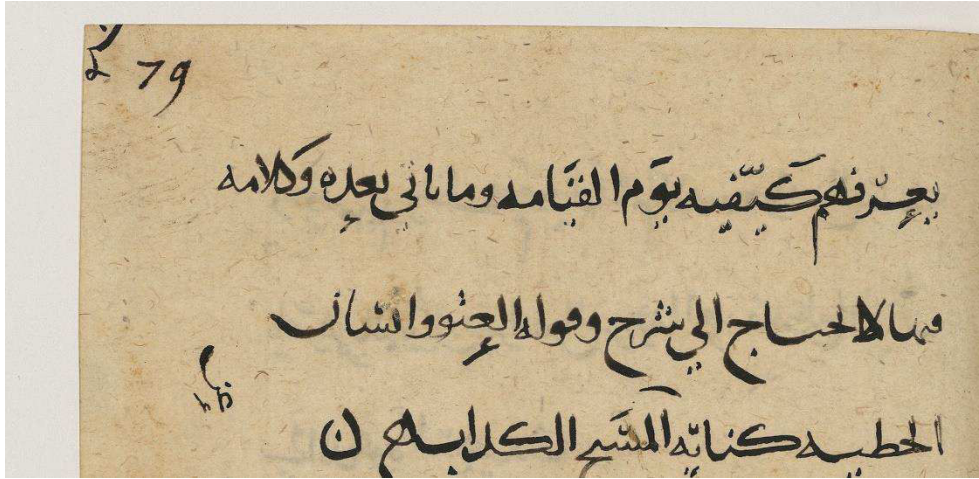 79
يعرفهم كيفيه يوم القيامه وما ياتي بعده وكلامه
فيها لا يحتاج الي شرح وقوله العتو وانسان
الخطيه كنايه المسيح الكداب